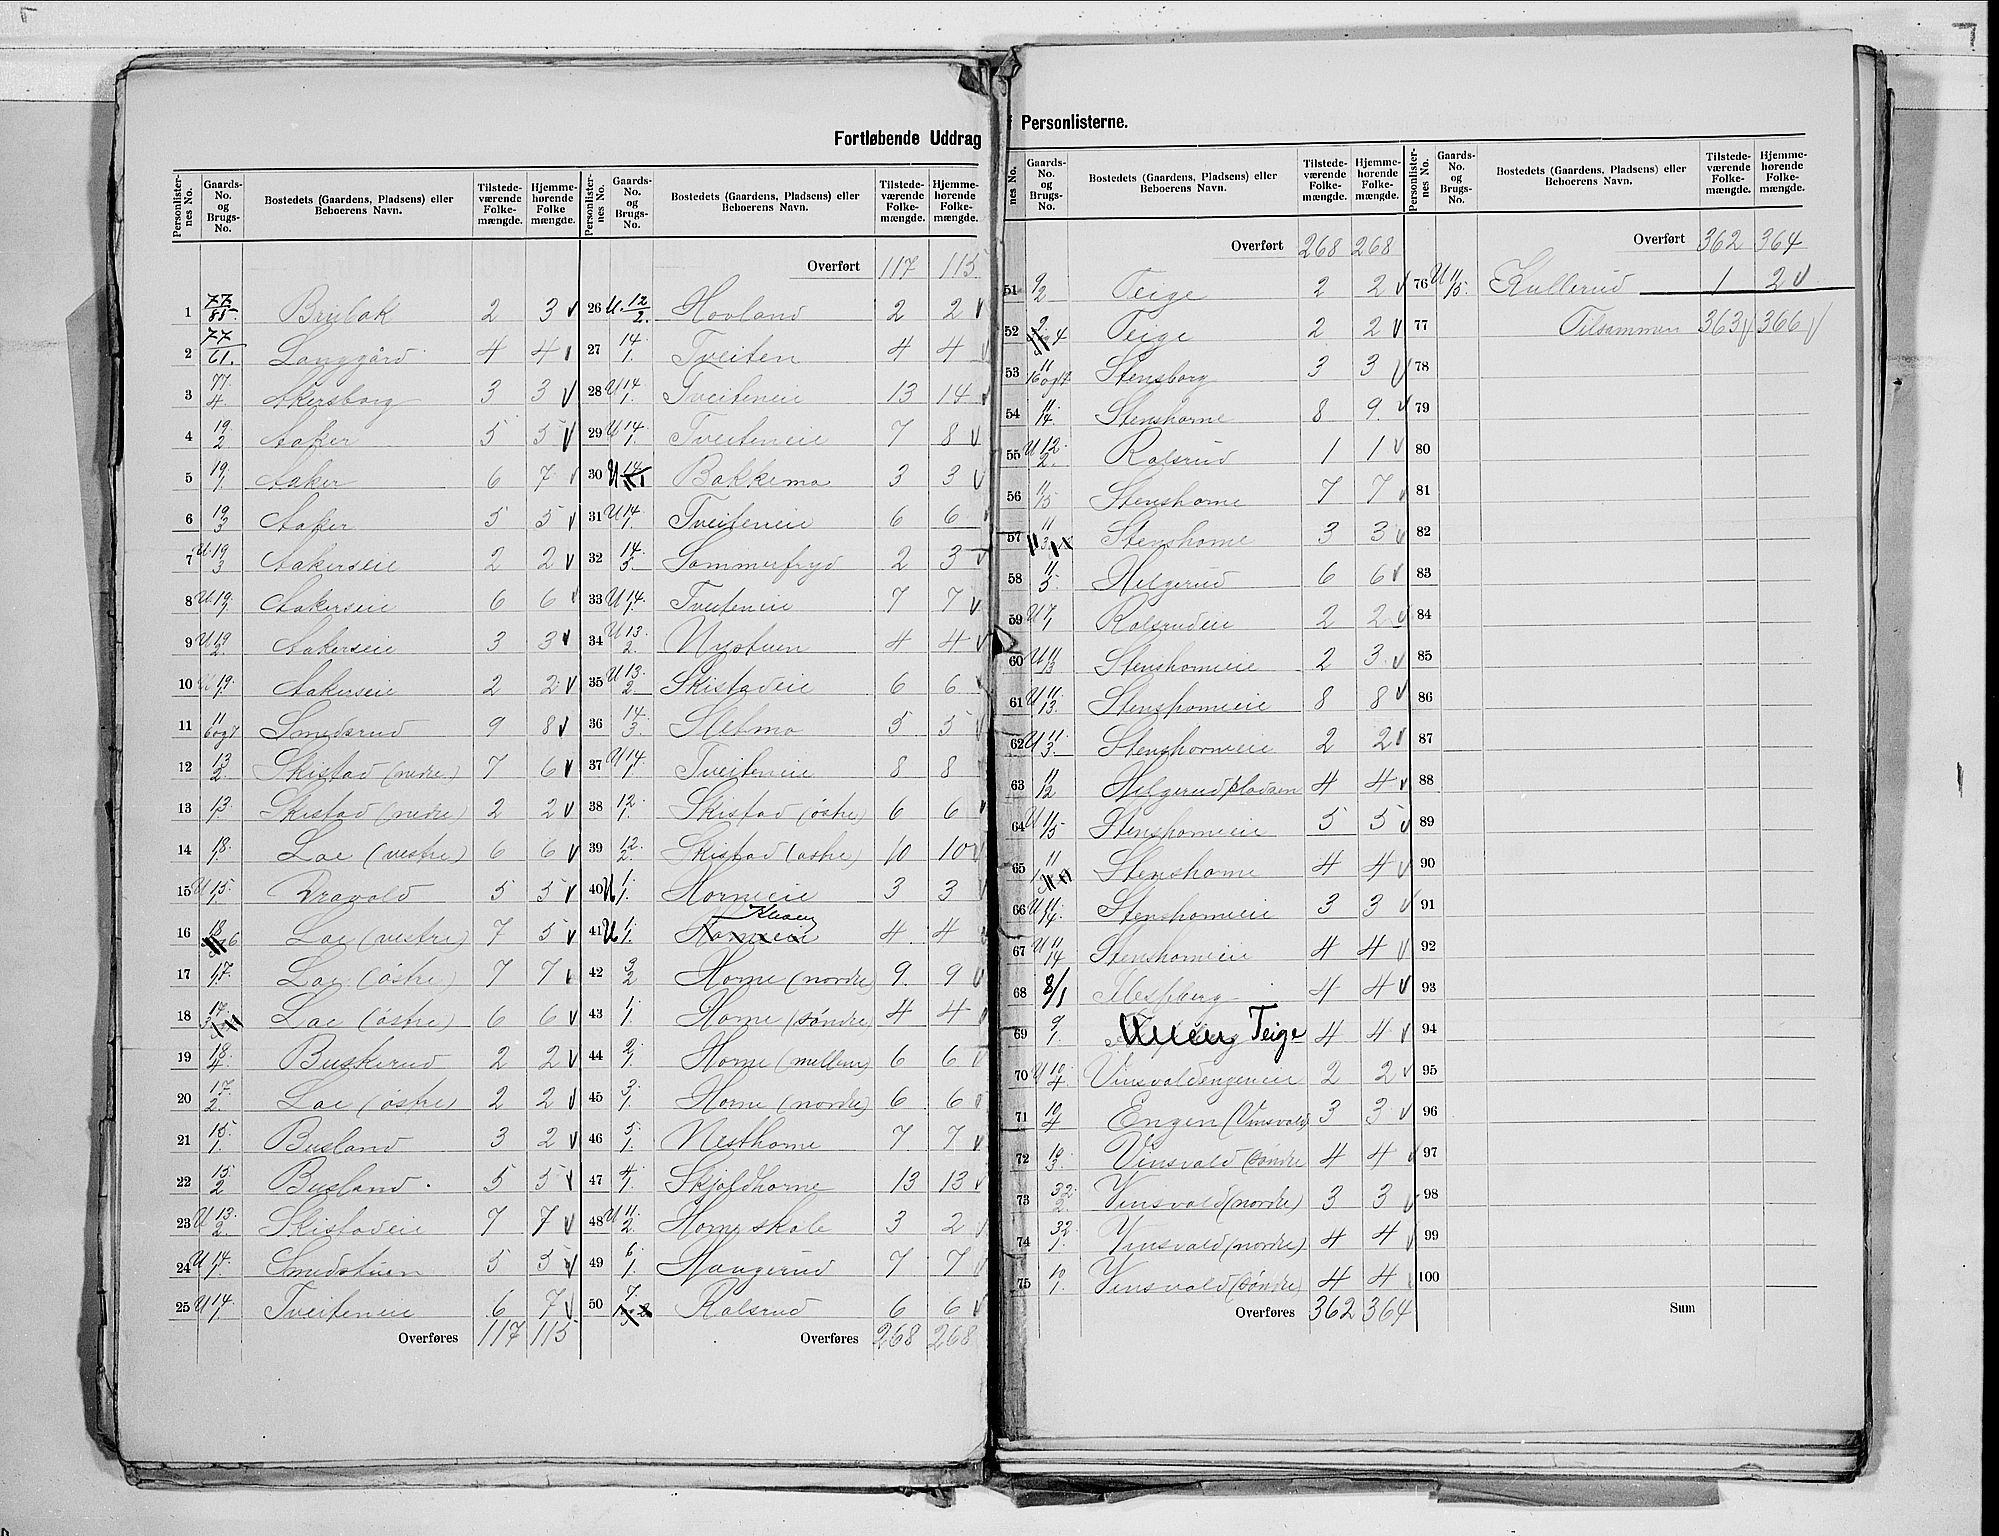 Fortløbende Uddrag
f Personlisterne.
Personlister-nes No. Gaards-No. og Brugs-No. Bostedets (Gaardens, Pladsens) eller Beboerens Navn. Tilstede-værende Folke-mængde. Hjemme-hørende Folke mængde.
Overført 117 115
1 77/85 Brubak 2 3 v
2 77/61 Langgård 4 4
3 77/4 Akersborg 3 3 v
4 19/2 Aaker 5 5 v
5 19/1 Aaker 6 7 v
6 19/3 Aaker 5 5 v
7 U 19/3 Aakerseie 2 2 v
8 U 19/1 Aakerseie 6 6 v
9 U 19/2 Aakerseie 3 3 v
10 U 19/1 Aakerseie 2 2 v
11 11/6 og 7 Smedsrud 9 8 v
12 13/2 Skistad (nedre) 7 6 v
13 13/1 Skistad (nedre) 2 2 v
14 18/1 Loe (vestre) 6 6 v
15 U 15/1 Dravold 5 5 v
16 18/6 Loe (vestre) 7 5 v
17 17/1 Loe (østre) 7 7 v
18 17/3 Loe (østre) 6 6 v
19 18/4 Buskerud 2 2 v
20 17/2 Loe (østre) 2 2 v
21 15/1 Busland 3 2 v
22 15/2 Busland 5 5 v
23 U 13/2 Skistadeie 7 7 v
24 U 14/1 Smedstuen 5 5 v
25 U 14/1 Tveiteneie 6 7 v
Overføres 117 115
26 U 12/2 Hovland 2 2 v
27 14/1 Tveiten 4 4 v
28 U 14/1 Tveiteneie 13 14 v
29 U 14/1 Tveiteneie 7 8 v
30 U 14/1 Bakkemo 3 3 v
31 U 14/1 Tveiteneie 6 6 v
32 14/5 Sommerfryd 2 3 v
33 U 14/1 Tveiteneie 7 7 v
34 U 13/2 Nystuen 4 4 v
35 U 13/2 Skistadeie 6 6 v
36 14/3 Sletmo 5 5 v
37 U 14/1 Tveiteneie 8 8 v
38 12/1 Skistad (østre) 6 6 v
39 12/2 Skistad (østre) 10 10 v
40 U 1/1 Horneeie 3 3 v
41 U 1/1 Horneeie 4 4 v
42 3/2 Horne (nordre) 9 9 v
43 1/1 Horne (søndre) 4 4 v
44 2/1 Horne (mellem) 6 6 v
45 3/1 Horne (nordre) 6 6 v
46 5/1 Nesthorne 7 7 v
47 4/1 Skjoldhorne 13 13 v
48 U 11/2 Horne skole 3 2 v
49 6/1 Haugerud 7 7 v
50 7/1 Kolsrud 6 6 v
Overføres 268 268
Overført 268 268
51 9/2 Teige 2 2 v
52 9/4 Teige 2 2 v
53 11/16 og 17 Stensborg 3 3 v
54 11/14 Stenshorne 8 9 v
55 U 12/2 Kolsrud 1 1 v
56 11/15 Stenshorne 7 7 v
57 11/3 Stenshorne 3 3 v
58 11/5 Helgerud 6 6 v
59 U 7/1 Kolsrudeie 2 2 v
60 U 11/3 Stenshorneie 2 3 v
61 U 11/13 Stenshorneie 8 8 v
62 U 11/3 Stenshorneie 2 2 v
63 11/12 Helgerudpladsen 4 4 v
64 U 11/15 Stenshorneie 5 5 v
65 11/1 Stenshorne 4 4 v
66 U 11/14 Stenshorneie 3 3 v
67 U 11/14 Stenshorneie 4 4 v
68 8/1 4 4 v
69 9/1 Teige 4 4 v
70 U 10/4 Vinsvoldengeneie 2 2 v
71 10/4 Engen (Vinsvold) 3 3 v
72 10/3 Vinsvold (søndre 4 4 v
73 32/2 Vinsvold (nordre) 3 3 v
74 32/1 Vinsvold (nordre) 4 4 v
75 10/1 Vinsvold (søndre) 4 4 v
Overføres 362 364
Overført 362 364
76 U 11/15 Kullerud 1 2 v
77 Tilsammen 363 v 366 v
78
79
80
81
82
83
84
85
86
87
88
89
90
91
92
93
94
95
96
97
98
99
100
Sum